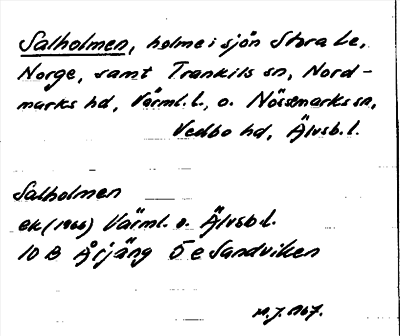 Salholmen, holme i sjön Stora Le,
Norge, samt Trankils sn, Nord-
marks hd, Värml. l., o. Nössemarks sn,
Vedbo hd, Älvsb. l.
Salholmen
ek (1966) Värml. o. Älvsb. l.
10 B Årjäng 5 e Sandviken
M. J. 1967.